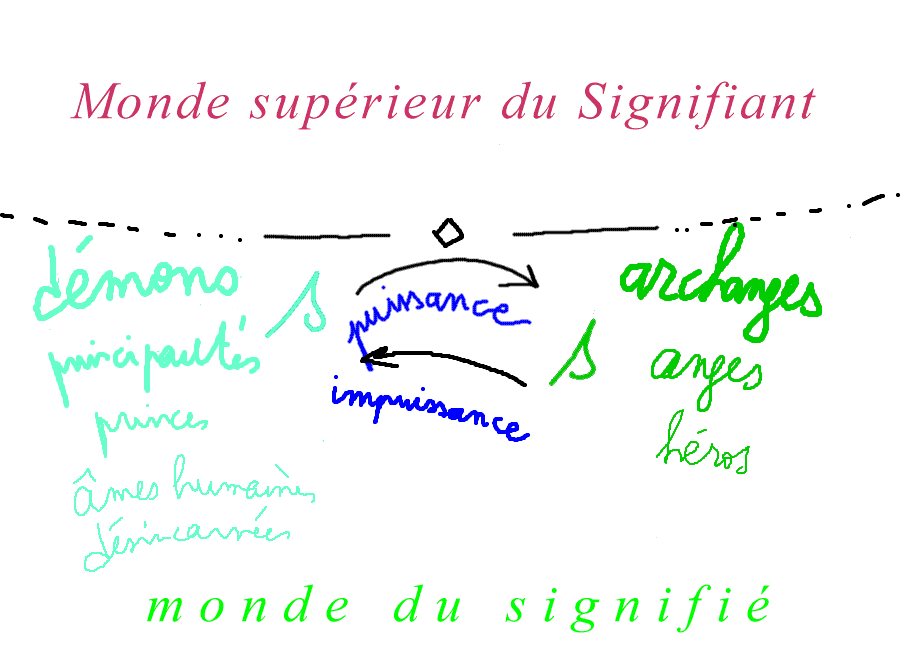 Monde supérieur du Signifiant
démons
archanges
s
puissance
s
principautés
anges
impuissance
princes
héros
âmes humaines
désincarnées
monde du signifié